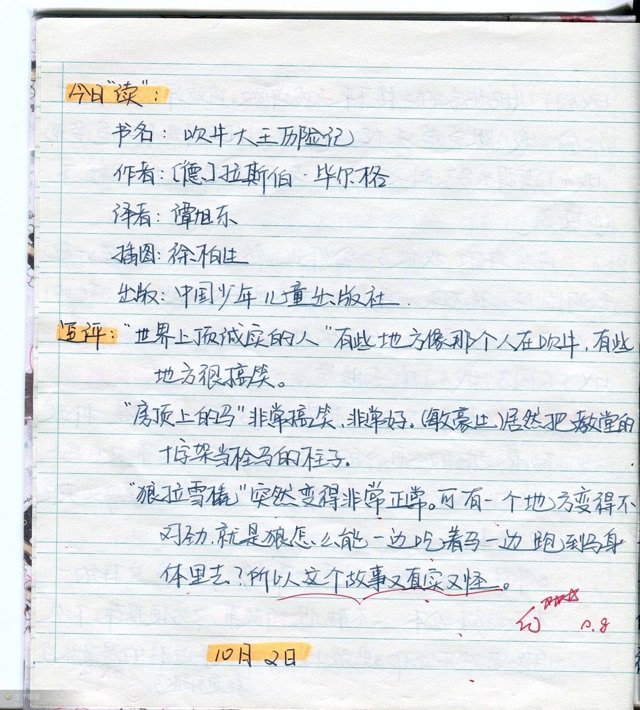 今日“读”：
书名：吹牛大王历险记
作者：〔德〕拉斯伯·毕尔格
译者：谭旭东
插图：徐柏生
出版：中国少年儿童出版社.
写评：“世界上顶诚实的人”有些地方像那个人在吹牛，有些
地方很搞笑。
“房顶上的马”非常搞笑、非常好。(敏豪生)居然把教堂的
十字架当栓马的柱子.
“狼拉雪橇”突然变得非常正常。可有一个地方变得不
对劲.就是狼怎么能一边吃着马一边跑到马身
体里去？所以这个故事又真实又怪。
10.8
10月2日